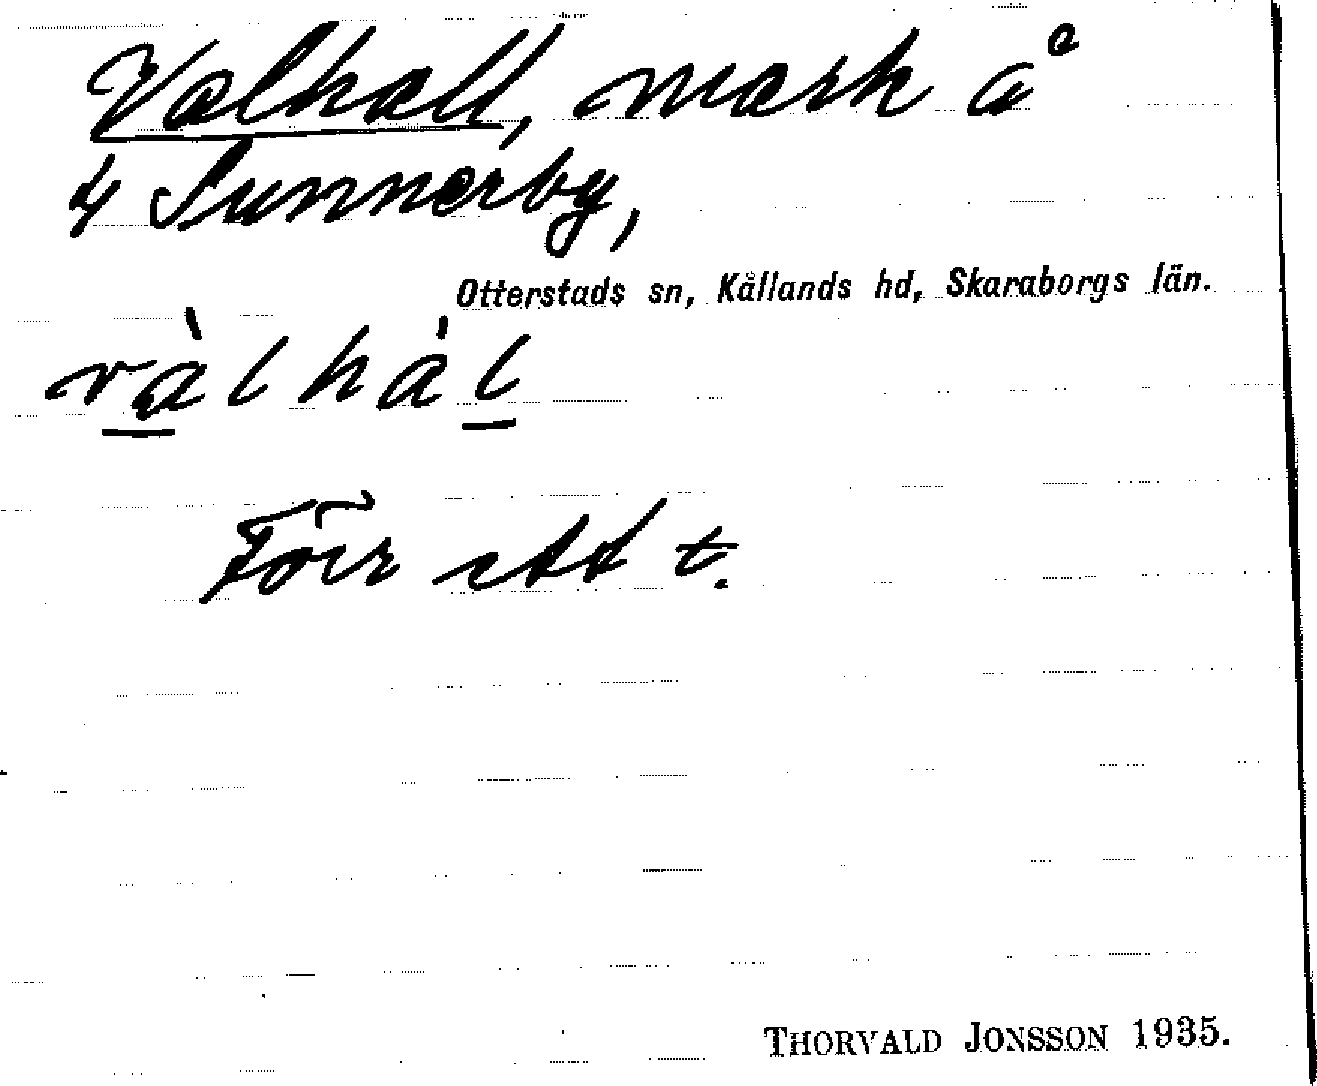 Valhall, mark å
4 Sunnerby,
Otterstads sn, Kållands hd, Skaraborgs län.
và̱lhàḻ
Förr ett t.
THORVALD JONSSON 1935.